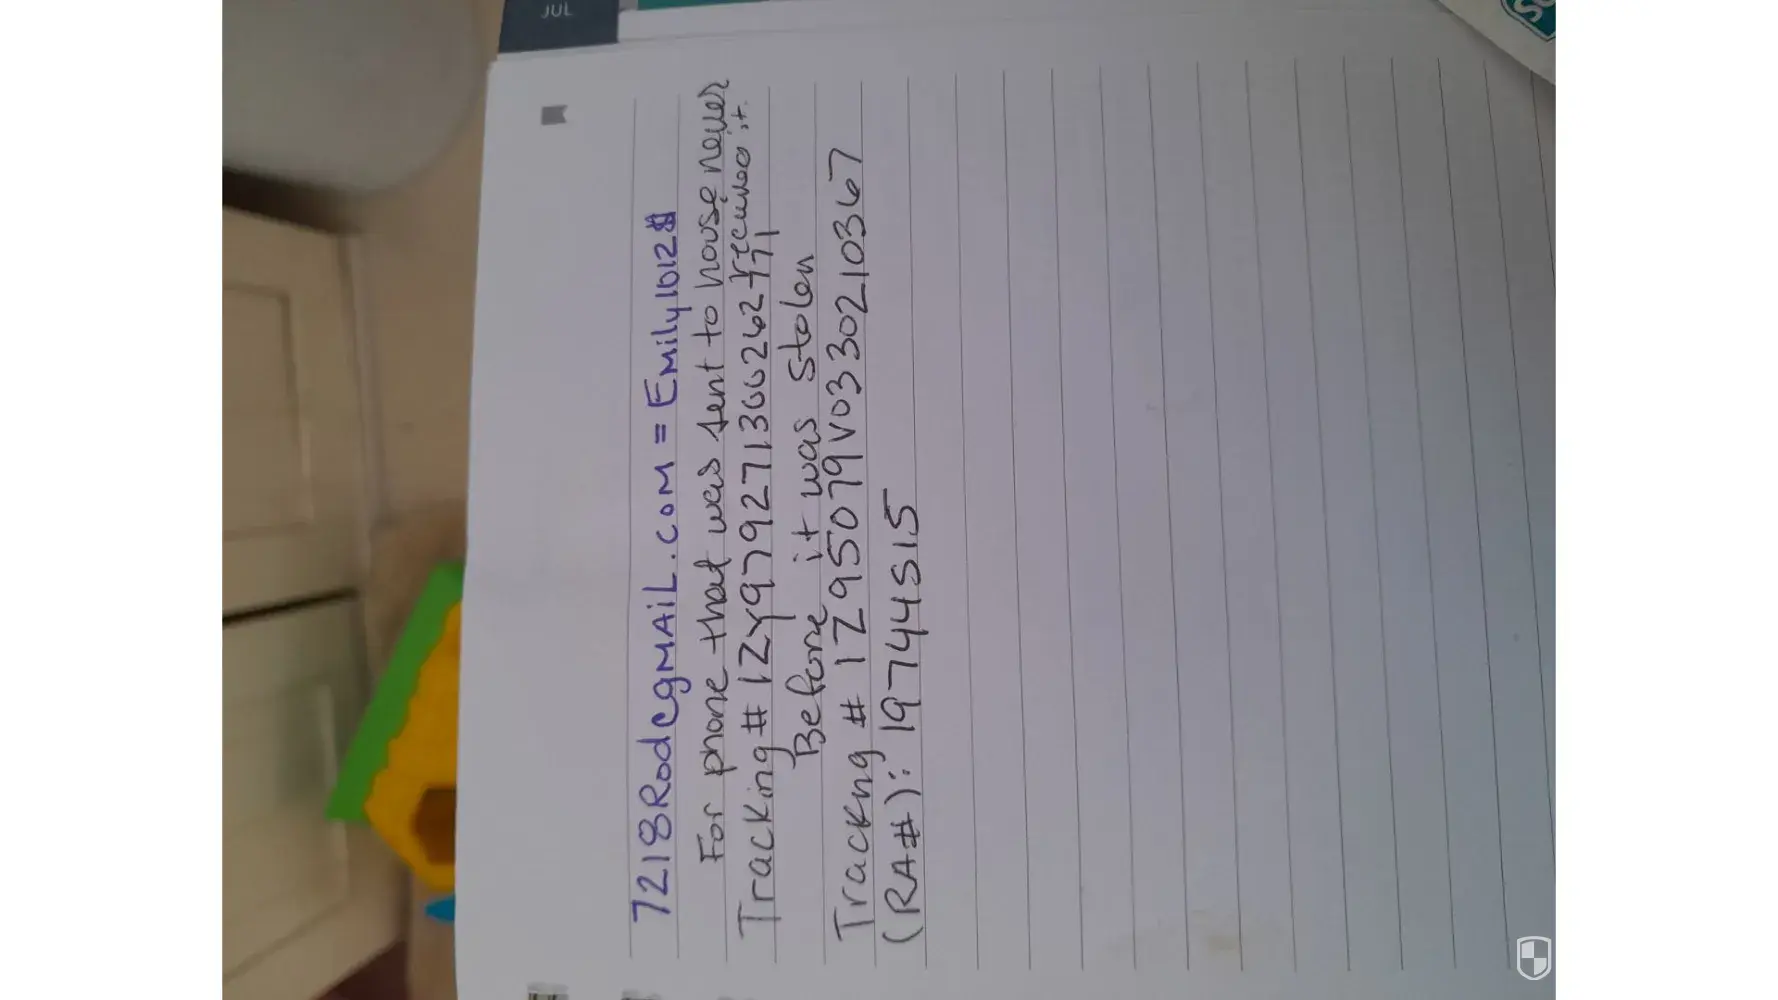 JUL
7218Rodc@gMAiL.coM = EMily1012$
For phone that was sent to house never
recieved it.
Tracking# 1ZY979271366262771
Before it was stolen
Trackng # 1Z95079V0330210367
(RA#): 19744515